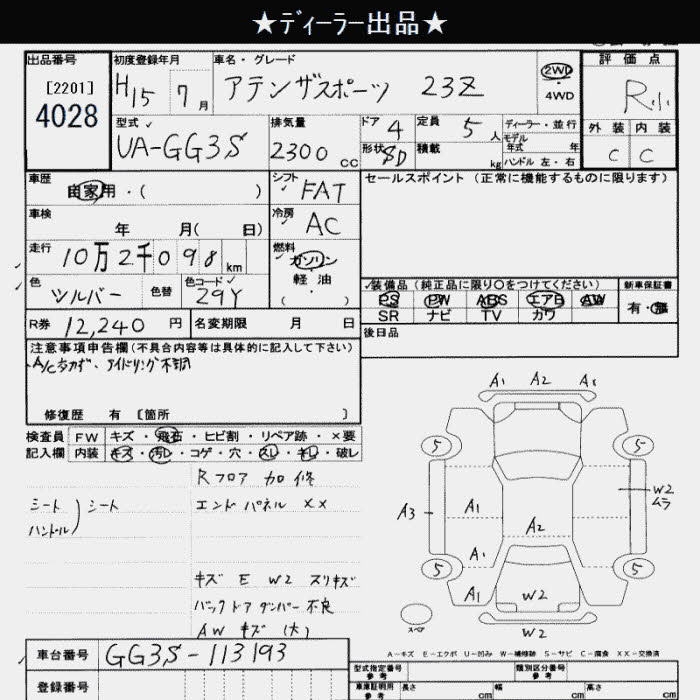 ★ディーラー出品★
出品番号 初度登録年月 車名・グレード 評価点
[2201] H15 7月 アテンザスポーツ 23Z 2WD・4WD R
4028
型式 排気量 ドア 定員 ディーラー・並行 外装 内装
UA-GG3S 2300cc 4 5人 モデル年式 年 C C
形状 5D 積載 kg ハンドル 左・右
車歴 シフト セールスポイント (正常に機能するものに限ります)
自家用・( ) FAT
車検 冷房
年 月( 日) AC
走行 燃料
10万2千098km ガソリン
色 色替 色コード 軽油 装備品(純正品に限り○をつけてください) 新車保証書
シルバー 29Y ・( ) PS PW ABS エアB AW 有・無
SR ナビ TV カワ
R券 12,240円 名変期限 月 日 後日品
注意事項申告欄(不具合内容等は具体的に記入して下さい)
A/Cきかず、アイドリング不調
修復歴 有 [箇所 ]
A1 A2 A1
検査員 FW キズ・飛石・ヒビ割・リペア跡・×要
記入欄 内装 キズ・汚レ・コゲ・穴・スレ・キレ・破レ
5 5
Rフロア 加修
シート ハンドル ) シート エンドパネル XX
A3 A1 A2 W2 ムラ
A1
5 5
キズ E W2 スリキズ A1 W2
バックドアダンパー不良 スペア W2
AW キズ(大)
A-キズ E-エクボ U-凹み W-補修跡 S-サビ C-腐食 XX-交換済
車台番号 GG3S-113193 型式指定番号 参考 類別区分番号 参考
登録番号 車庫証明用 参考 長さ cm 幅 cm 高さ cm